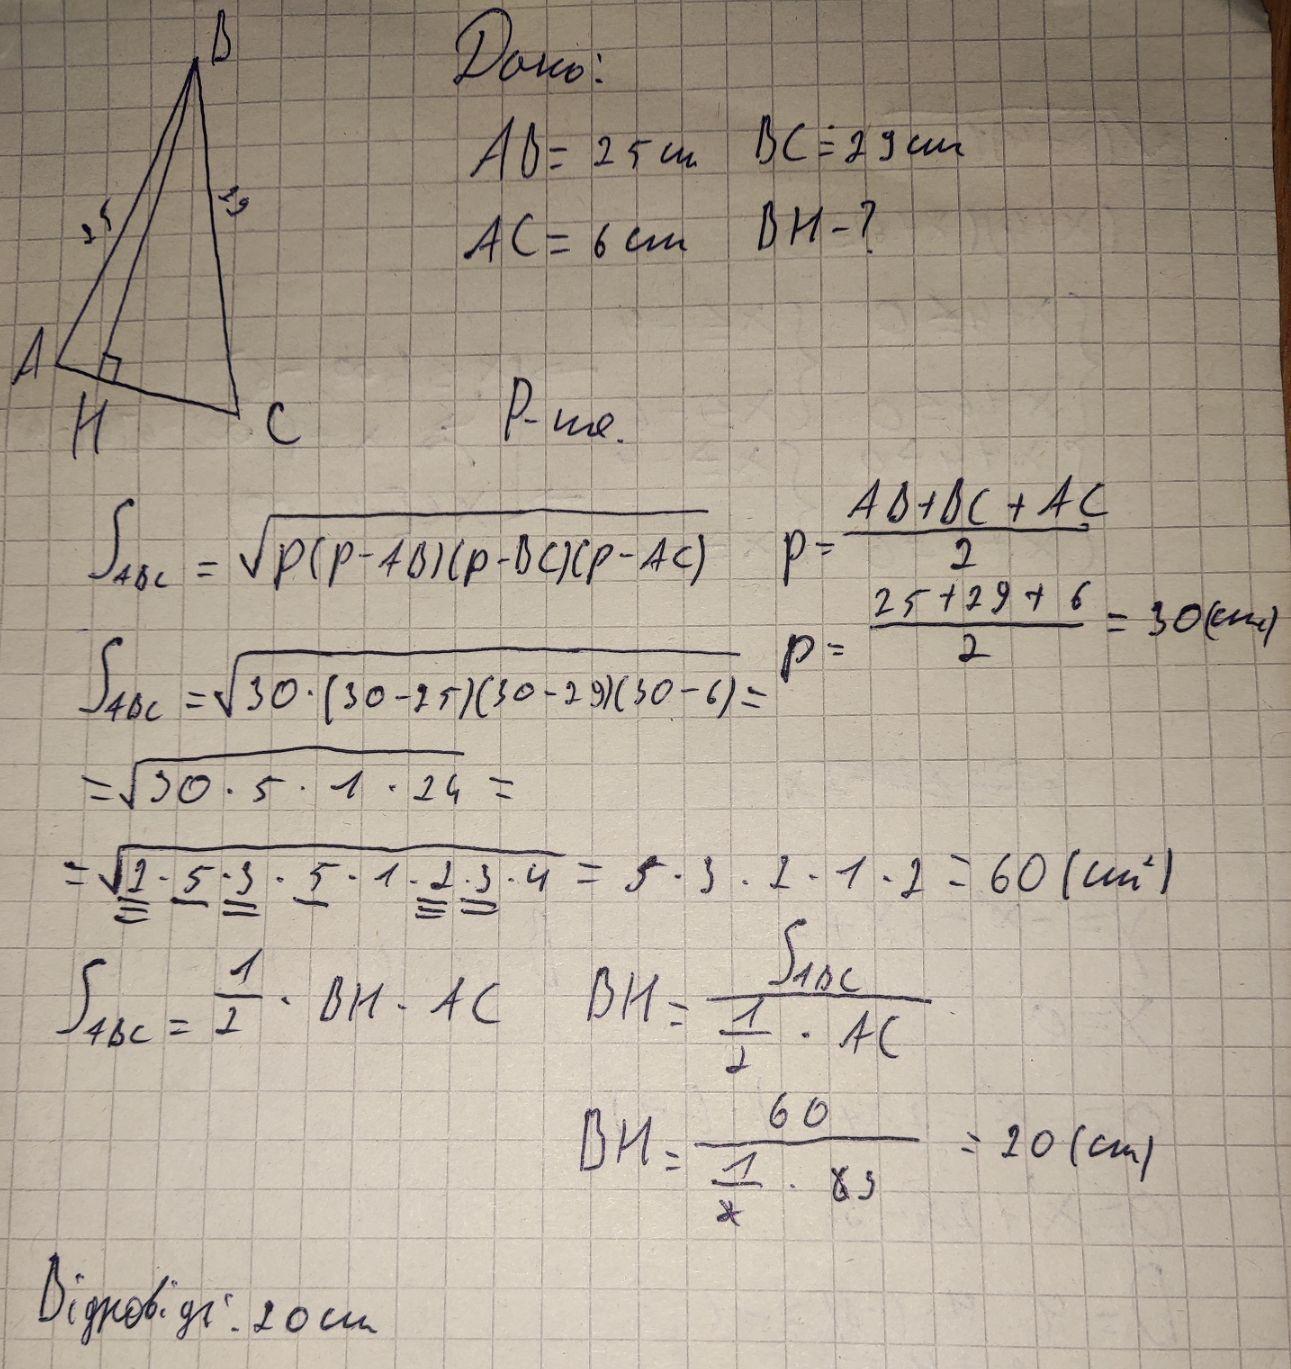 B
Дано:
AB = 25 cm BC = 29 cm
25
29
AC = 6 cm BH - ?
A
H
C
Р-ня.
S_ABC = √p(p-AB)(p-BC)(p-AC) p = (AB+BC+AC)/2
p = (25+29+6)/2 = 30(cm)
S_ABC = √30·(30-25)(30-29)(30-6) =
= √30·5·1·24 =
= √2·5·3·5·1·2·3·4 = 5·3·2·1·2 = 60 (cm²)
S_ABC = 1/2 · BH · AC BH = S_ABC/(1/2 · AC)
BH = 60/(1/2 · 6 3) = 20 (cm)
Відповідь: 20 cm